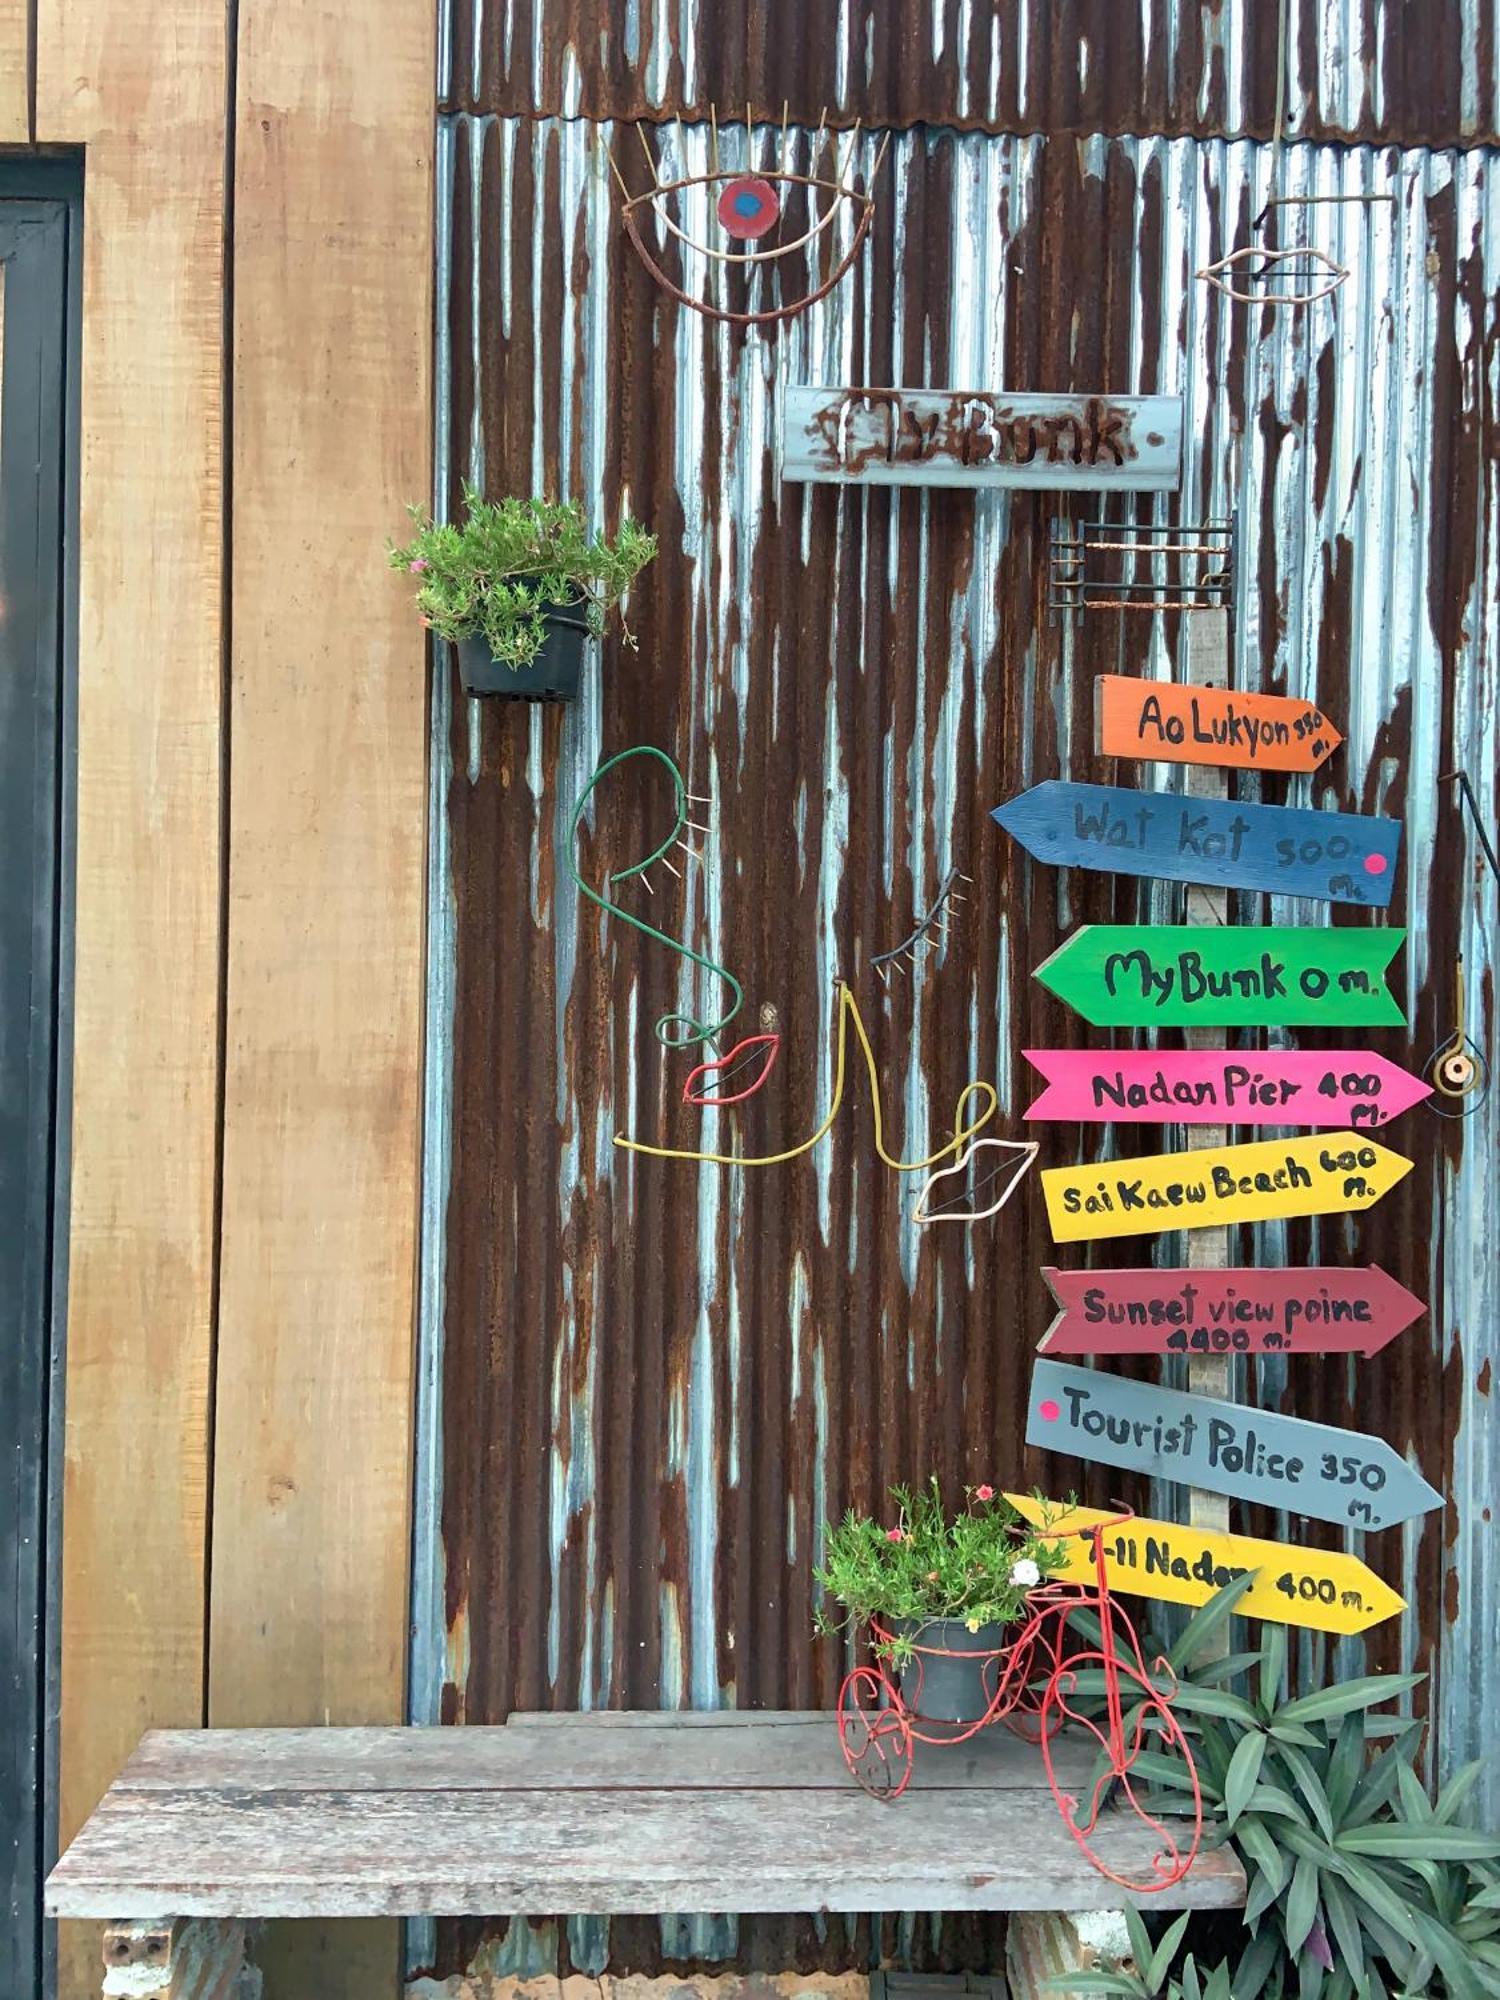 My Bunk
Ao Lukyon 350
m.
Wat Kot 500
m.
My Bunk 0 m.
Nadan Pier 400
m.
Sai Kaew Beach 600
m.
Sunset view poine
4400 m.
Tourist Police 350
m.
7-11 Nadan 400 m.